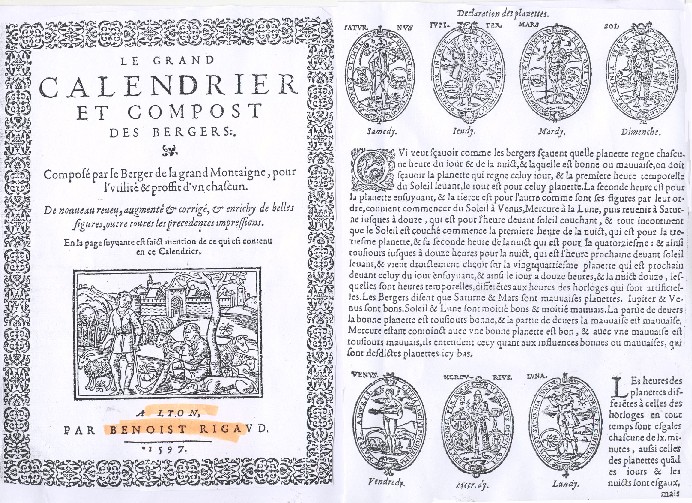 LE GRAND
CALENDRIER
ET COMPOST
DES BERGERS:.
Composé par le Berger de la grand Montaigne, pour
l'vtilité & proffit d'vn chascun.
De nouueau reueu, augmenté & corrigé, & enrichy de belles
figures, outre toutes les precedentes impressions.
En la page suyuante est faict mention de ce qui est contenu
en ce Calendrier.
A LYON,
PAR BENOIST RIGAVD.
1597.
Declaration des planettes.
SATVR. NVS IVPI. TER. MARS SOL.
Samedy. Ieudy. Mardy. Dimenche.
QVi veut sçauoir comme les bergers sçauent quelle planette regne chascu-
ne heure du iour & de la nuict, & laquelle est bonne ou mauuaise, on doit
sçauoir la planette qui regne celuy iour, & la premiere heure temporelle
du Soleil leuant, le iour est pour celuy planette. La seconde heure est pour
la planette ensuyuant, & la tierce est pour l'autre comme sont ses figures par leur or-
dre, conuient commencer du Soleil à Venus, Mercure à la Lune, puis reuenir à Satur-
ne iusques à douze, qui est pour l'heure deuant soleil couchant, & tout incontinent
que le Soleil est couché commence la premiere heure de la nuict, qui est pour la tre-
ziesme planette, & la seconde heure de la nuict qui est pour la quatorziesme: & ainsi
tousiours iusques à douze heures pour la nuict, qui est l'heure prochaine deuant soleil
leuant, & vient droictement cheoir sur la vingtquatriesme planette qui est prochain
deuant celuy du iour ensuyuant, & ainsi le iour a douze heures, & la nuict douze, les-
quelles sont heures temporelles, differétes aux heures des horloges qui sont artificiel-
les. Les Bergers disent que Saturne & Mars sont mauuaises planettes. Iupiter & Ve-
nus sont bons. Soleil & Lune sont moitié bons & moitié mauuais. La partie de deuers
la bonne planette est tousiours bonne, & la partie de deuers la mauuaise est mauuaise.
Mercure estant conioinct auec vne bonne planette est bon, & auec vne mauuaise est
tousiours mauuais, ils entendent cecy quant aux influences bonnes ou mauuaises, qui
sont desdictes planettes icy bas.
VENVS. MERCV. RIVS. LVNA.
Vendredy. Mercredy. Lundy.
LEs heures des
planettes dif-
feretes à celles des
horloges en tout
temps sont esgales
chascune de lx. mi-
nutes, aussi celles
des planettes quād
es iours & les
nuicts sont esgaux,
mais